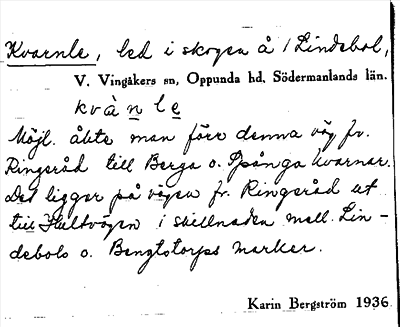 Kvarnle, led i skogen å Lindebol,
V. Vingåkers sn, Oppunda hd, Södermanlands län.
kvà̀n l e
Möjl. åkte man förr denna väg fr.
Ringeråd till Berga o. Spånga kvarnar.
Det ligger på vägen fr. Ringeråd ut
till Hultvägen i skillnaden mell. Lin-
debols o. Bengtstorps marker.
Karin Bergström 1936